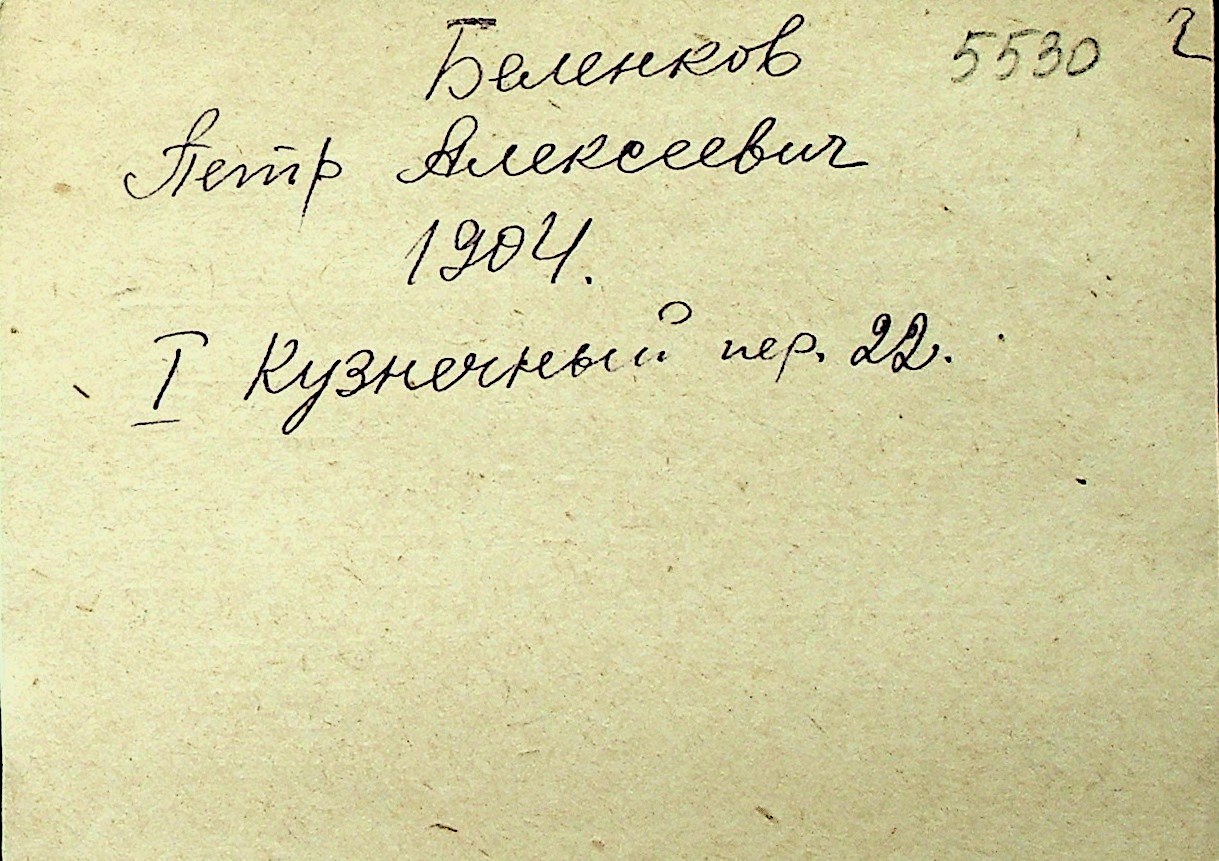 Беленков 5530 2
Петр Алексеевич
1904.
I Кузнечный пер. 22.